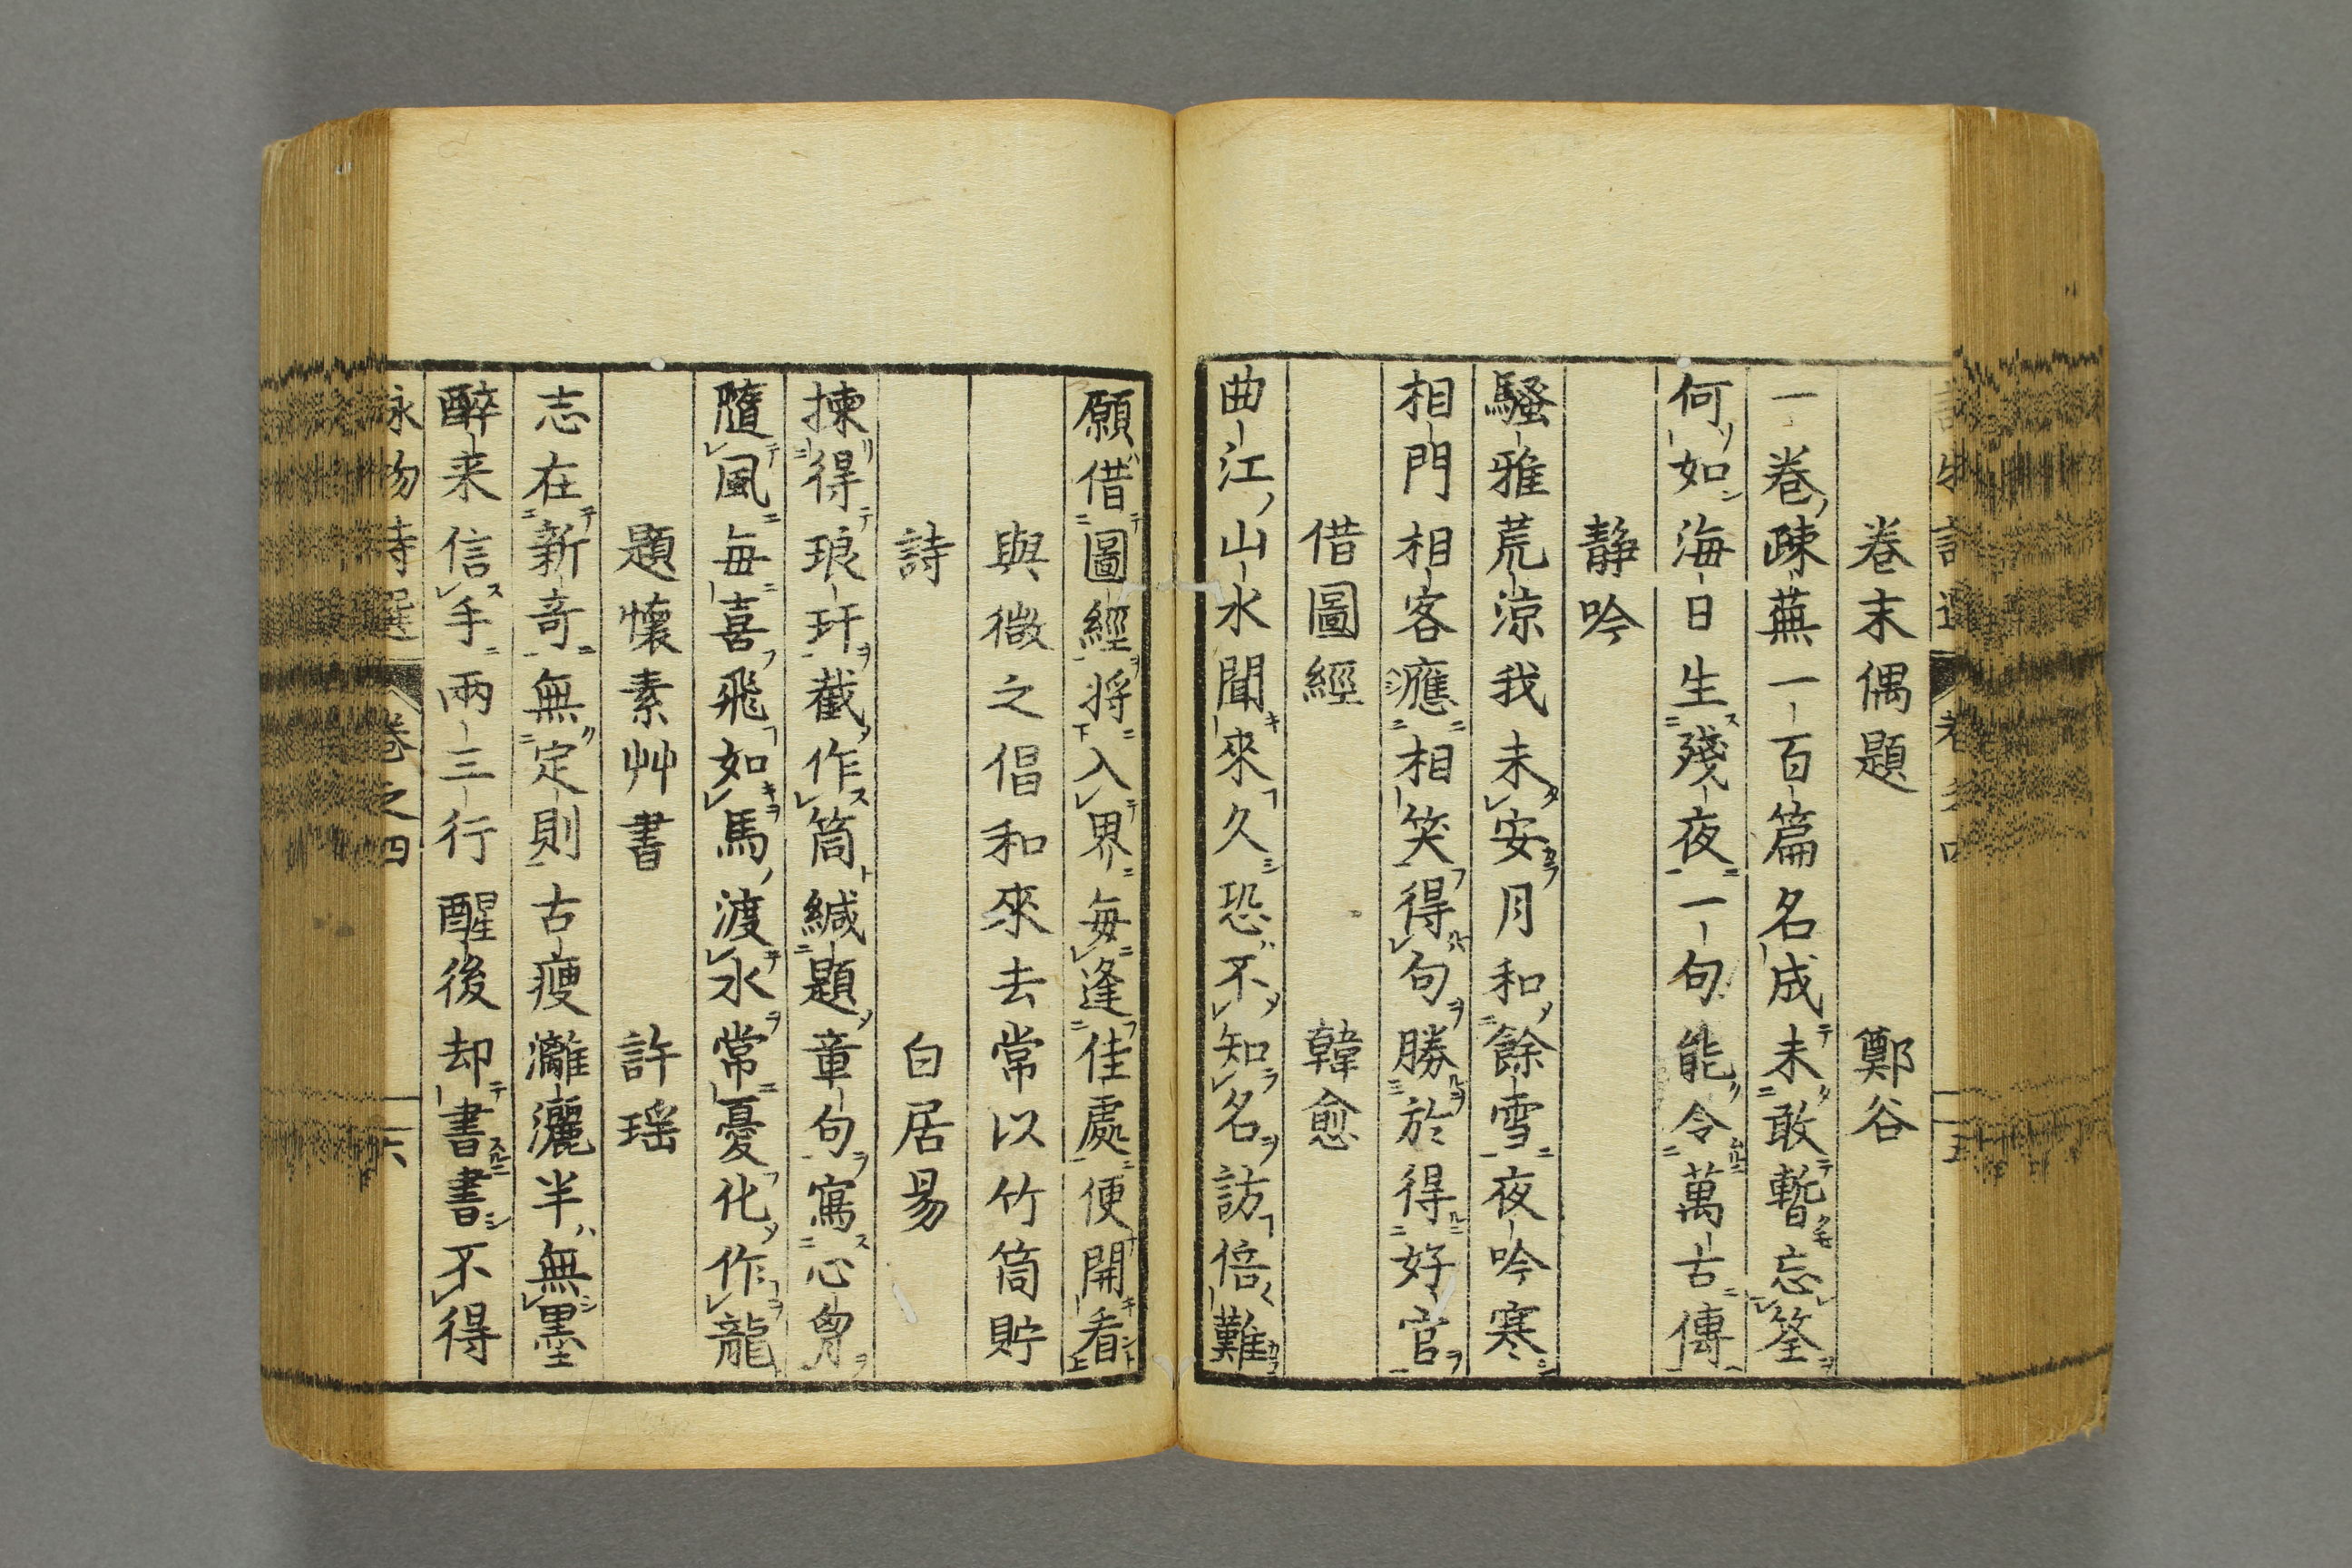 卷末偶題 鄭谷
一卷疎蕪一百篇名成未敢暫忘筌
何如海日生殘夜一句能令萬古傳
靜吟
騷雅荒涼我未安月和餘雪夜吟寒
相門相客應相笑得句勝於得好官
借圖經 韓愈
曲江山水聞來久恐不知名訪倍難
願借圖經將入界每逢佳處便開看
與微之倡和來去常以竹筒貯
詩 白居易
揀得琅玕截作筒緘題章句寫心胷
隨風每喜飛如馬渡水常憂化作龍
題懷素艸書 許瑶
志在新奇無定則古瘦灕灑半無墨
醉来信手兩三行醒後却書書不得
詠物詩選 卷之四 六